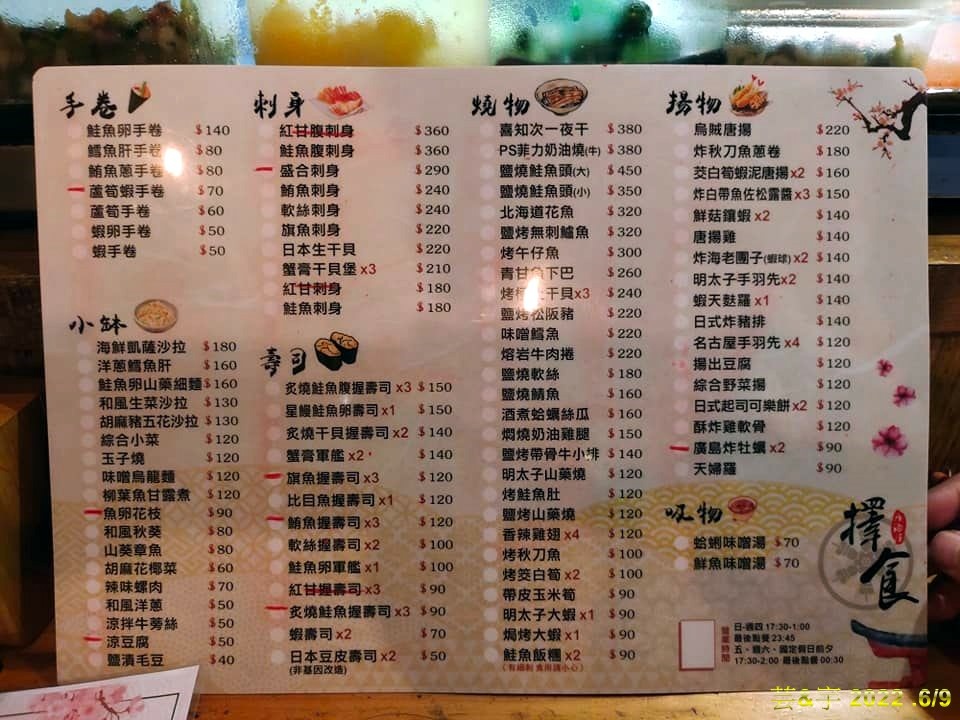 手卷
鮭魚卵手卷 $140
鱈魚肝手卷 $80
鮪魚蔥手卷 $80
蘆筍蝦手卷 $70
蘆筍手卷 $60
蝦卵手卷 $50
蝦手卷 $50
小缽
海鮮凱薩沙拉 $180
洋蔥鱈魚肝 $160
鮭魚卵山藥細麵 $160
和風生菜沙拉 $130
胡麻豬五花沙拉 $130
綜合小菜 $120
玉子燒 $120
味噌烏龍麵 $120
柳葉魚甘露煮 $120
魚卵花枝 $90
和風秋葵 $80
山葵章魚 $80
胡麻花椰菜 $60
辣味螺肉 $70
和風洋蔥 $50
涼拌牛蒡絲 $50
涼豆腐 $50
鹽漬毛豆 $40
刺身
紅甘腹刺身 $360
鮭魚腹刺身 $360
盛合刺身 $290
鮪魚刺身 $240
軟絲刺身 $240
旗魚刺身 $220
日本生干貝 $220
蟹膏干貝堡x3 $210
紅甘刺身 $180
鮭魚刺身 $180
壽司
炙燒鮭魚腹握壽司 x3 $150
星鰻鮭魚卵壽司x1 $150
炙燒干貝握壽司x2 $140
蟹膏軍艦x2 $140
旗魚握壽司x3 $120
比目魚握壽司x1 $120
鮪魚握壽司x3 $120
軟絲握壽司x2 $100
鮭魚卵軍艦x1 $100
紅甘握壽司x3 $90
炙燒鮭魚握壽司x3 $90
蝦壽司x2 $70
日本豆皮壽司x2 $50
(非基因改造)
燒物
喜知次一夜干 $380
PS菲力奶油燒(牛) $380
鹽燒鮭魚頭(大) $450
鹽燒鮭魚頭(小) $350
北海道花魚 $320
鹽烤無刺鱸魚 $320
烤午仔魚 $300
青甘魚下巴 $260
干貝x3 $240
鹽烤松阪豬 $220
味噌鱈魚 $220
熔岩牛肉捲 $220
鹽燒軟絲 $180
鹽燒鯖魚 $160
酒煮蛤蠣絲瓜 $160
燜燒奶油雞腿 $150
鹽烤帶骨牛小排 $140
明太子山藥燒 $120
烤鮭魚肚 $120
鹽烤山藥燒 $120
香辣雞翅x4 $120
烤秋刀魚 $100
烤筊白筍x2 $100
帶皮玉米筍 $90
明太子大蝦x1 $90
焗烤大蝦x1 $90
鮭魚飯糰x2 $90
(有細刺 食用請小心)
揚物
烏賊唐揚 $220
炸秋刀魚蔥卷 $180
茭白筍蝦泥唐揚x2 $160
炸白帶魚佐松露醬x3 $150
鮮菇鑲蝦x2 $140
唐揚雞 $140
炸海老團子(蝦球)x2 $140
明太子手羽先x2 $140
蝦天麩羅x1 $140
日式炸豬排 $140
名古屋手羽先x4 $120
揚出豆腐 $120
綜合野菜揚 $120
日式起司可樂餅x2 $120
酥炸雞軟骨 $120
廣島炸牡蠣x2 $90
天婦羅 $90
吸物
蛤蜊味噌湯 $70
鮮魚味噌湯 $70
擇食
營業時間
日-週四 17:30-1:00
最後點餐 23:45
五、週六、國定假日前夕
17:30-2:00 最後點餐 00:30
芸&宇 2022 .6/9